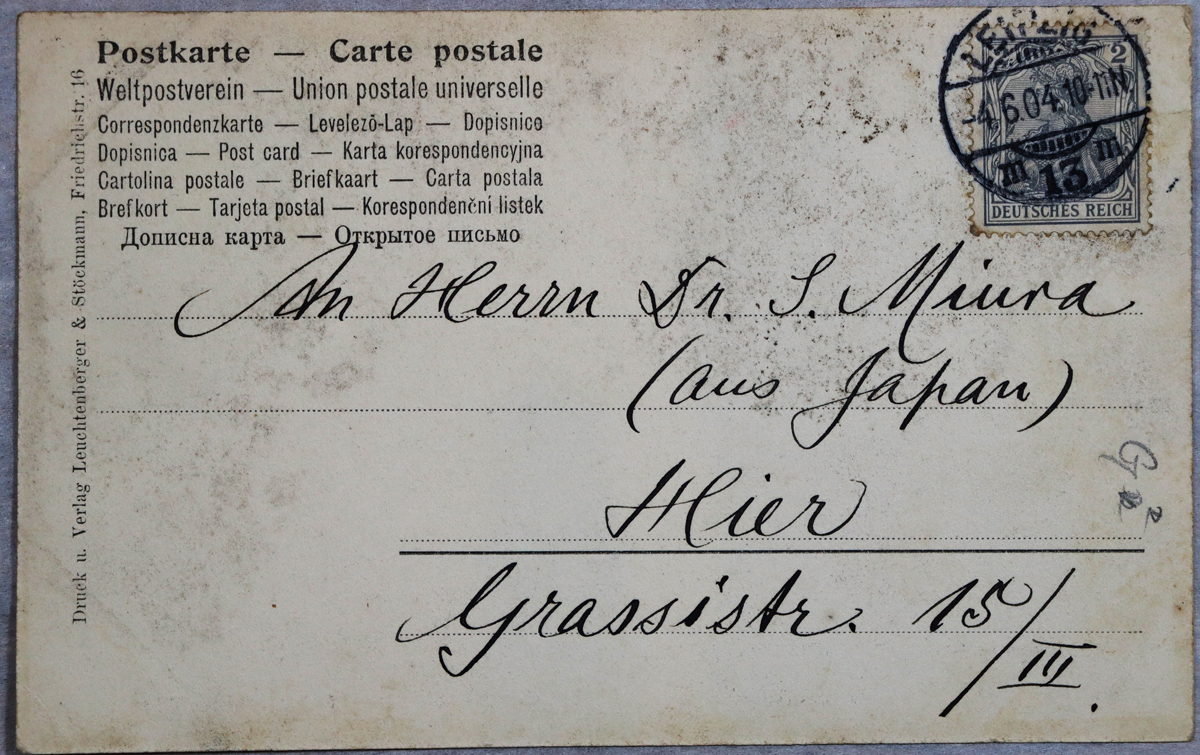 Postkarte — Carte postale
Weltpostverein — Union postale universelle
Correspondenzkarte — Levelező-Lap — Dopisnice
Dopisnica — Post card — Karta korespondencyjna
Cartolina postale — Briefkaart — Carta postala
Brefkort — Tarjeta postal — Korespondenční listek
Дописна карта — Открытое письмо
Druck u. Verlag Leuchtenberger & Stöckmann, Friedrichstr. 16
LEIPZIG
-4.6.04.10-11N
m 13 m
2
DEUTSCHES REICH
An Herrn Dr. S. Miura
(aus Japan)
Hier
Grassistr. 15/III.